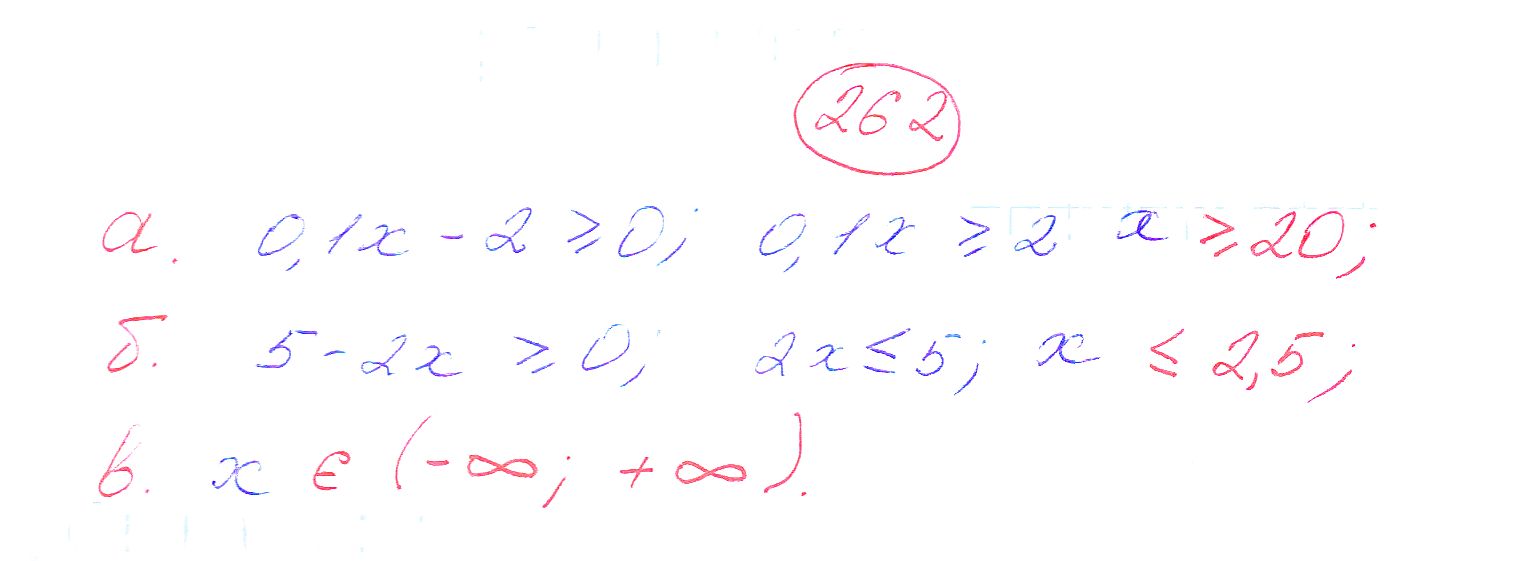 262
а. 0,1x - 2 ⩾ 0; 0,1x ⩾ 2 x ⩾ 20;
б. 5 - 2x ⩾ 0; 2x ≤ 5; x ≤ 2,5;
в. x ∈ (-∞; +∞).